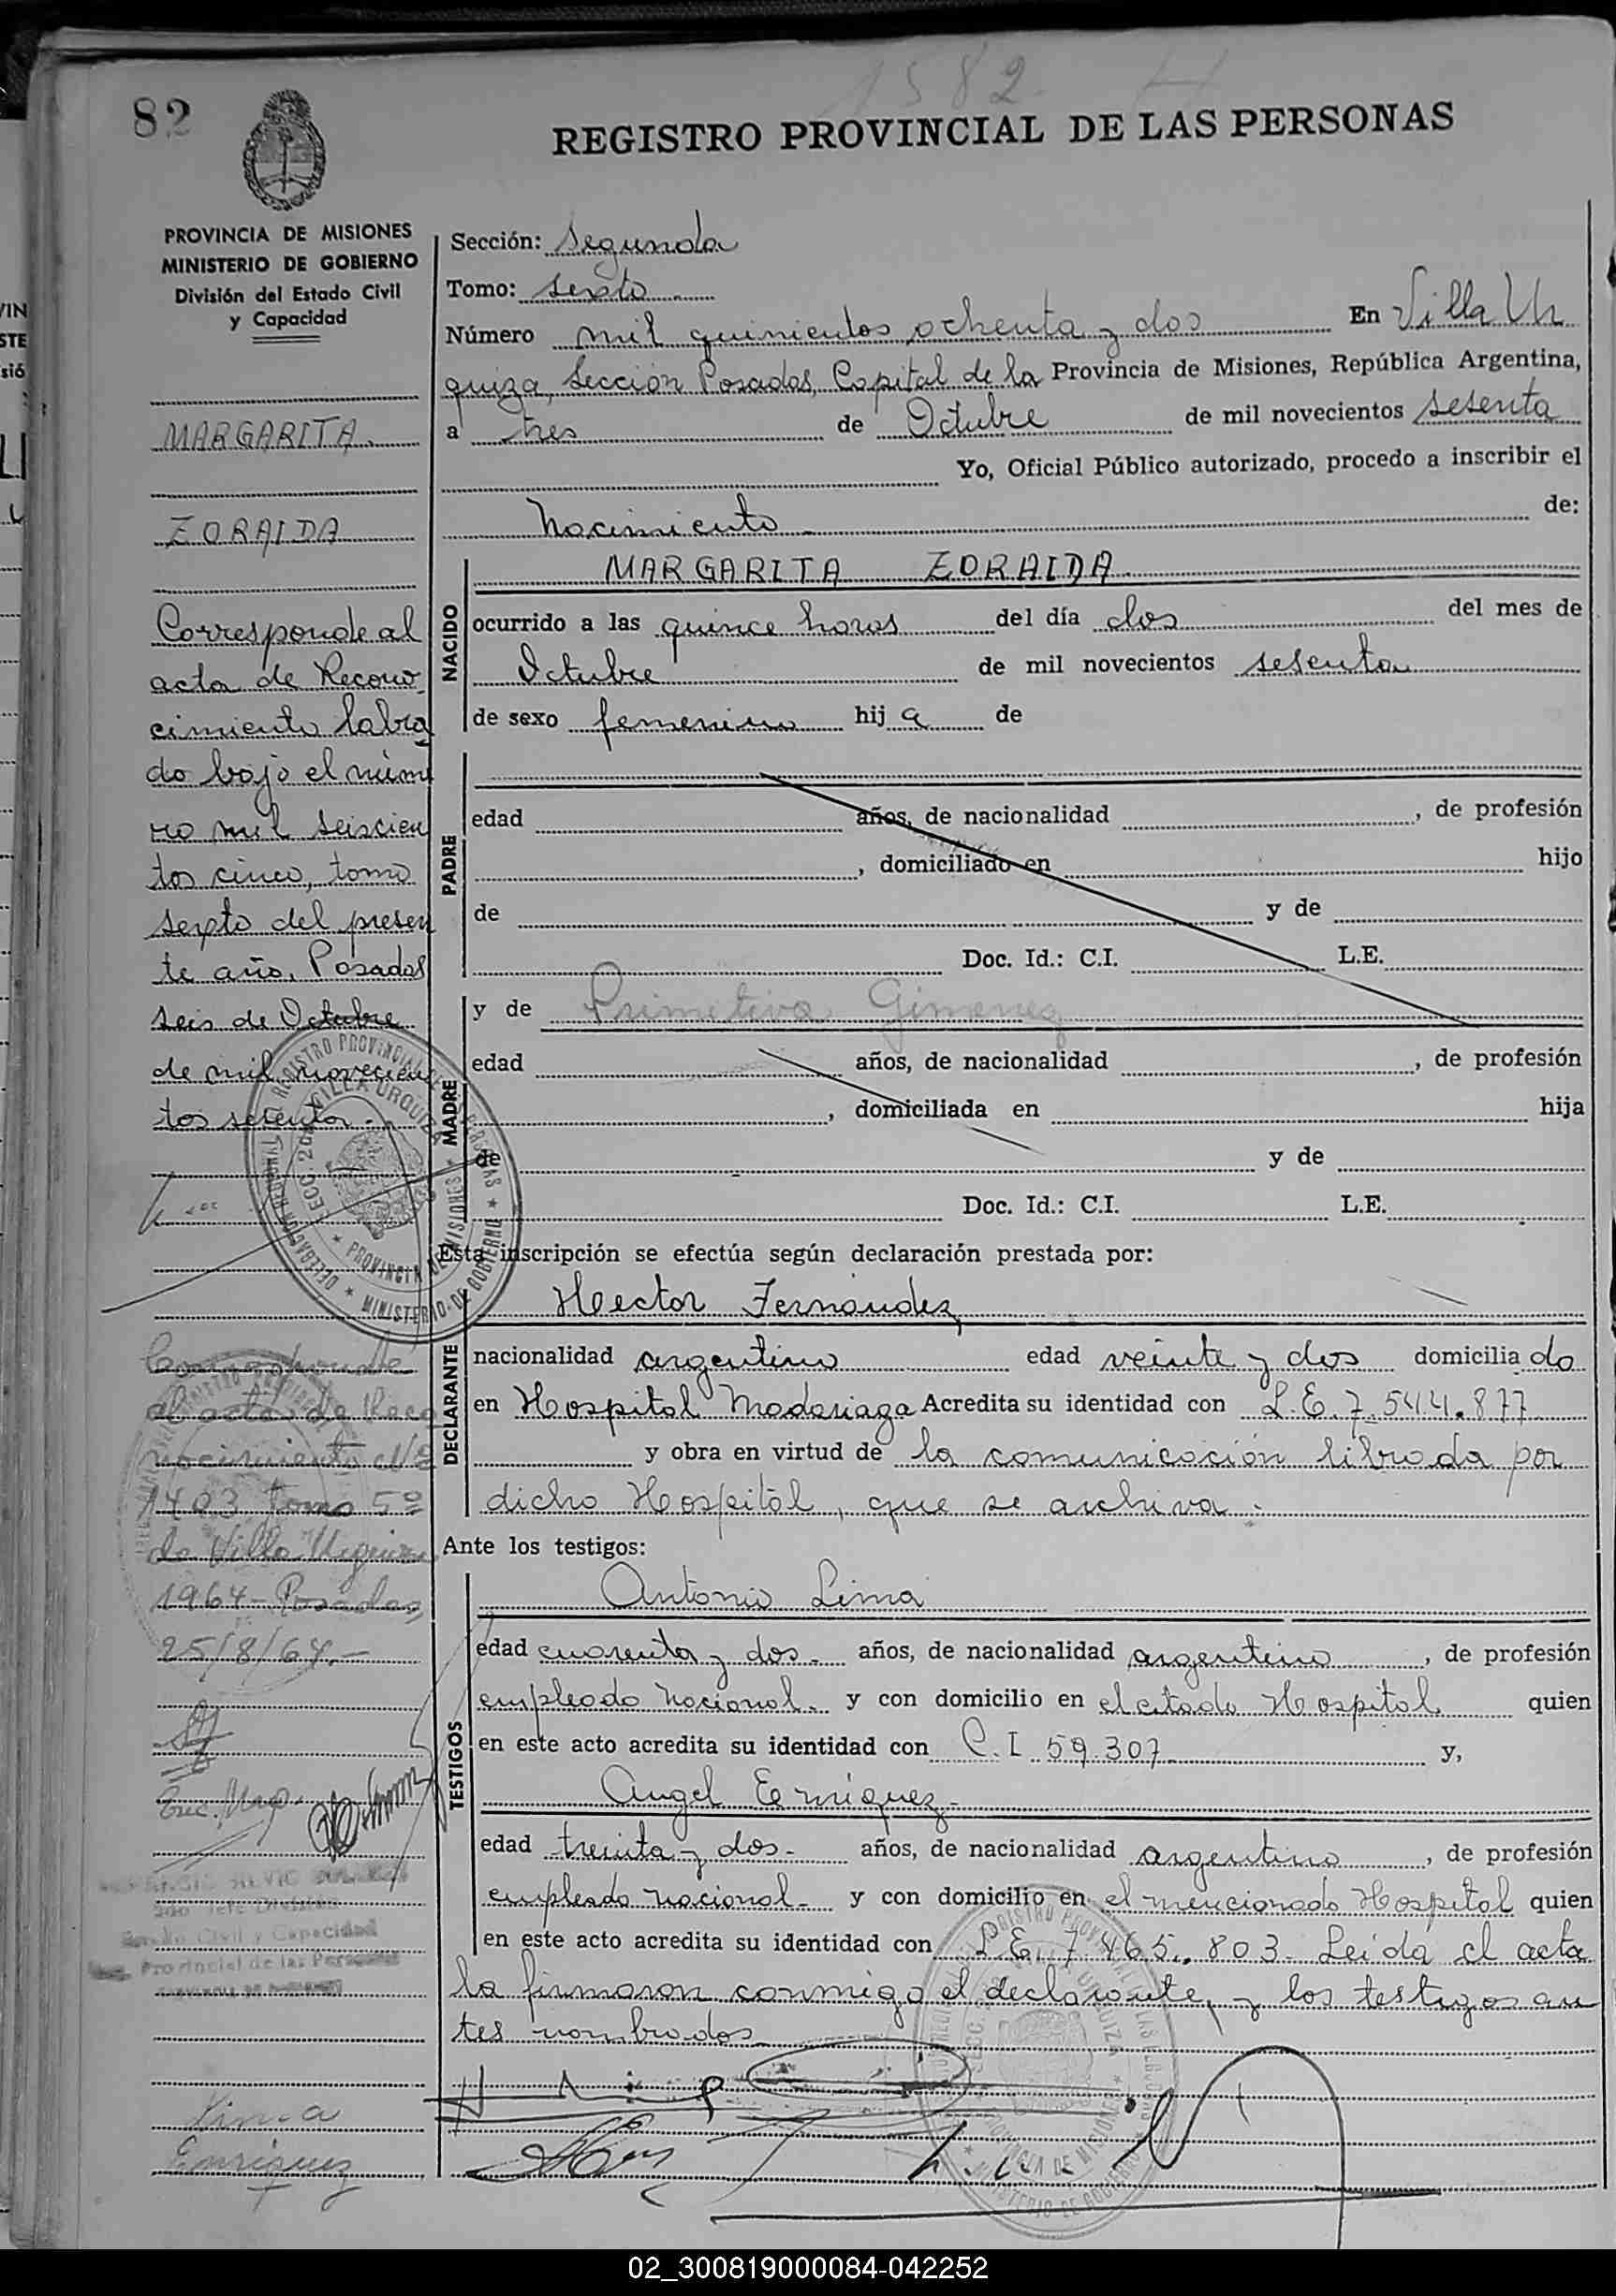 1582
82
REGISTRO PROVINCIAL DE LAS PERSONAS
PROVINCIA DE MISIONES
MINISTERIO DE GOBIERNO
División del Estado Civil
y Capacidad
MARGARITA
ZORAIDA
Corresponde al
acta de Recono
cimiento labra
do bajo el núme
ro mil seiscien
tos cinco, tomo
sexto del presen
te año. Posadas
seis de Octubre
de mil novecien
tos setenta.
Corresponde
al acta de Reco
nocimiento Nº
1403 tomo 5º
de Villa Urquiza
1964 - Posadas,
25/8/64.-
Enc.
2do Jefe División
Estado Civil y Capacidad
Provincial de las Personas
Lima
Enriquez
Sección: Segunda
Tomo: sexto
Número mil quinientos ochenta y dos En Villa Ur
quiza, Sección Posadas, Capital de la Provincia de Misiones, República Argentina,
a tres de Octubre de mil novecientos sesenta
Yo, Oficial Público autorizado, procedo a inscribir el
Nacimiento de:
NACIDO
MARGARITA ZORAIDA
ocurrido a las quince horas del día dos del mes de
Octubre de mil novecientos sesenta
de sexo femenino hij a de
PADRE
edad años, de nacionalidad , de profesión
, domiciliado en hijo
de y de
Doc. Id.: C.I. L.E.
MADRE
y de Primitiva Gimenez
edad años, de nacionalidad , de profesión
, domiciliada en hija
de y de
Doc. Id.: C.I. L.E.
Esta inscripción se efectúa según declaración prestada por:
DECLARANTE
Hector Fernández,
nacionalidad argentino edad veinte y dos domicilia do
en Hospital Madariaga Acredita su identidad con L.E. 7.544.877
y obra en virtud de la comunicación librada por
dicho Hospital, que se archiva.
Ante los testigos:
TESTIGOS
Antonio Lima
edad cuarenta y dos- años, de nacionalidad argentino , de profesión
empleado nacional- y con domicilio en el citado Hospital quien
en este acto acredita su identidad con C.I 59.307 y,
Angel Enriquez-
edad treinta y dos- años, de nacionalidad argentino , de profesión
empleado nacional- y con domicilio en el mencionado Hospital quien
en este acto acredita su identidad con L.E. 7.465.803- Leída el acta
la firmaron conmigo el declarante, y los testigos an
tes nombrados
REGISTRO PROVINCIAL DE LAS PERSONAS
VILLA URQUIZA
PROVINCIA DE MISIONES
MINISTERIO DE GOBIERNO
DELEGACION REGIONAL
02_300819000084-042252